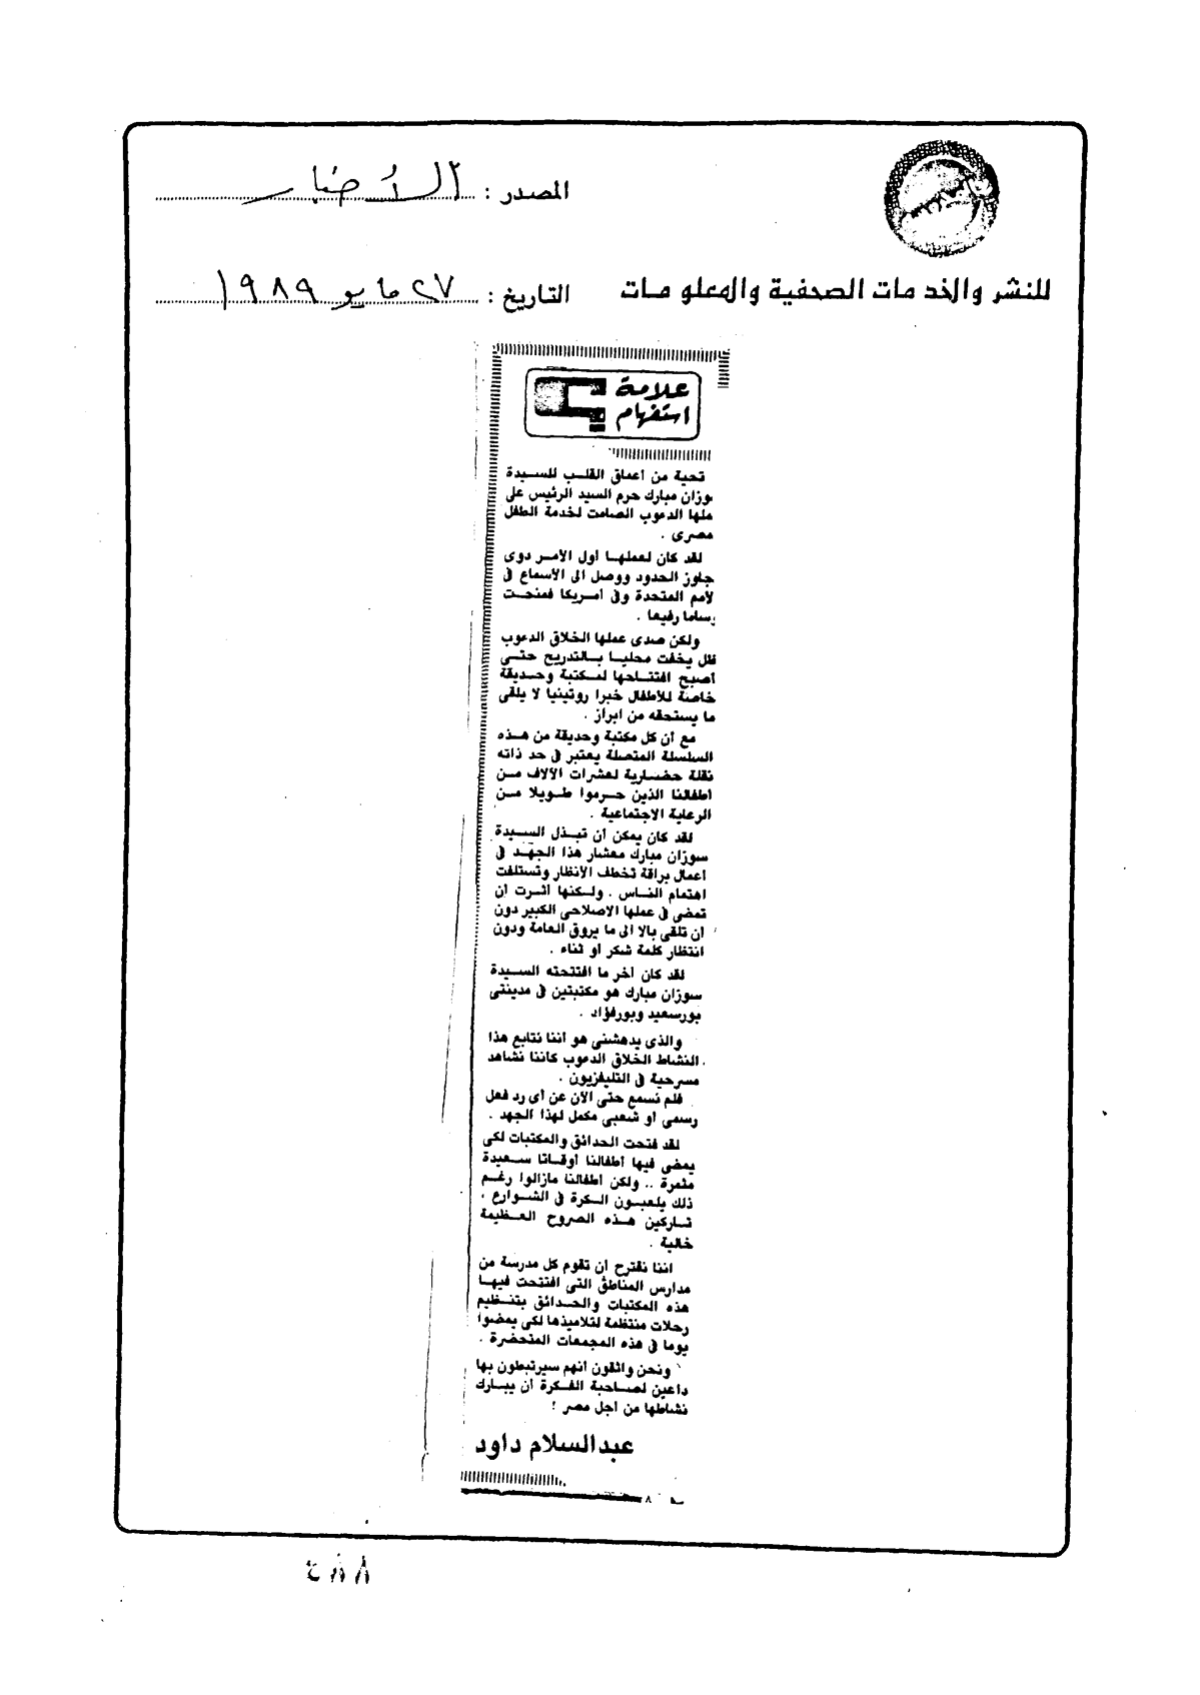 المصدر : الأخبار
للنشر والخدمات الصحفية والمعلومات
التاريخ : ٢٧ مايو ١٩٨٩
علامة
استفهام
تحية من أعماق القلب للسيدة
وزان مبارك حرم السيد الرئيس على
ملها الدعوب الصامت لخدمة الطفل
مصرى .
لقد كان لعملها أول الأمر دوى
جاوز الحدود ووصل الى الأسماع فى
لأمم المتحدة وفى أمريكا فمنحت
وساما رفيعا .
ولكن صدى عملها الخلاق الدعوب
ظل يخفت محليا بالتدريج حتى
أصبح افتتاحها لمكتبة وحديقة
خاصة للأطفال خبرا روتينيا لا يلقى
ما يستحقه من ابراز .
مع أن كل مكتبة وحديقة من هذه
السلسلة المتصلة يعتبر فى حد ذاته
نقلة حضارية لعشرات الآلاف من
أطفالنا الذين حرموا طويلا من
الرعاية الاجتماعية .
لقد كان يمكن أن تبذل السيدة
سوزان مبارك معشار هذا الجهد فى
اعمال براقة تخطف الأنظار وتستلفت
اهتمام الناس . ولكنها اثرت ان
تمضى فى عملها الاصلاحى الكبير دون
أن تلقى بالا الى ما يروق العامة ودون
انتظار كلمة شكر او ثناء .
لقد كان أخر ما افتتحته السيدة
سوزان مبارك هو مكتبتين فى مدينتى
بورسعيد وبورفؤاد .
والذى يدهشنى هو أننا نتابع هذا
النشاط الخلاق الدعوب كاننا نشاهد
مسرحية فى التليفزيون .
فلم نسمع حتى الآن عن أى رد فعل
رسمى او شعبى مكمل لهذا الجهد .
لقد فتحت الحدائق والمكتبات لكى
يمضى فيها أطفالنا أوقاتا سعيدة
مثمرة .. ولكن أطفالنا مازالوا رغم
ذلك يلعبون الكرة فى الشوارع ،
تاركين هذه الصروح العظيمة
خالية .
اننا نقترح ان تقوم كل مدرسة من
مدارس المناطق التى افتتحت فيها
هذه المكتبات والحدائق بتنظيم
رحلات منتظمة لتلاميذها لكى يمضوا
يوما فى هذه المجمعات المتحضرة .
ونحن واثقون أنهم سيرتبطون بها
داعين لصاحبة الفكرة أن يبارك
نشاطها من اجل مصر !
عبدالسلام داود